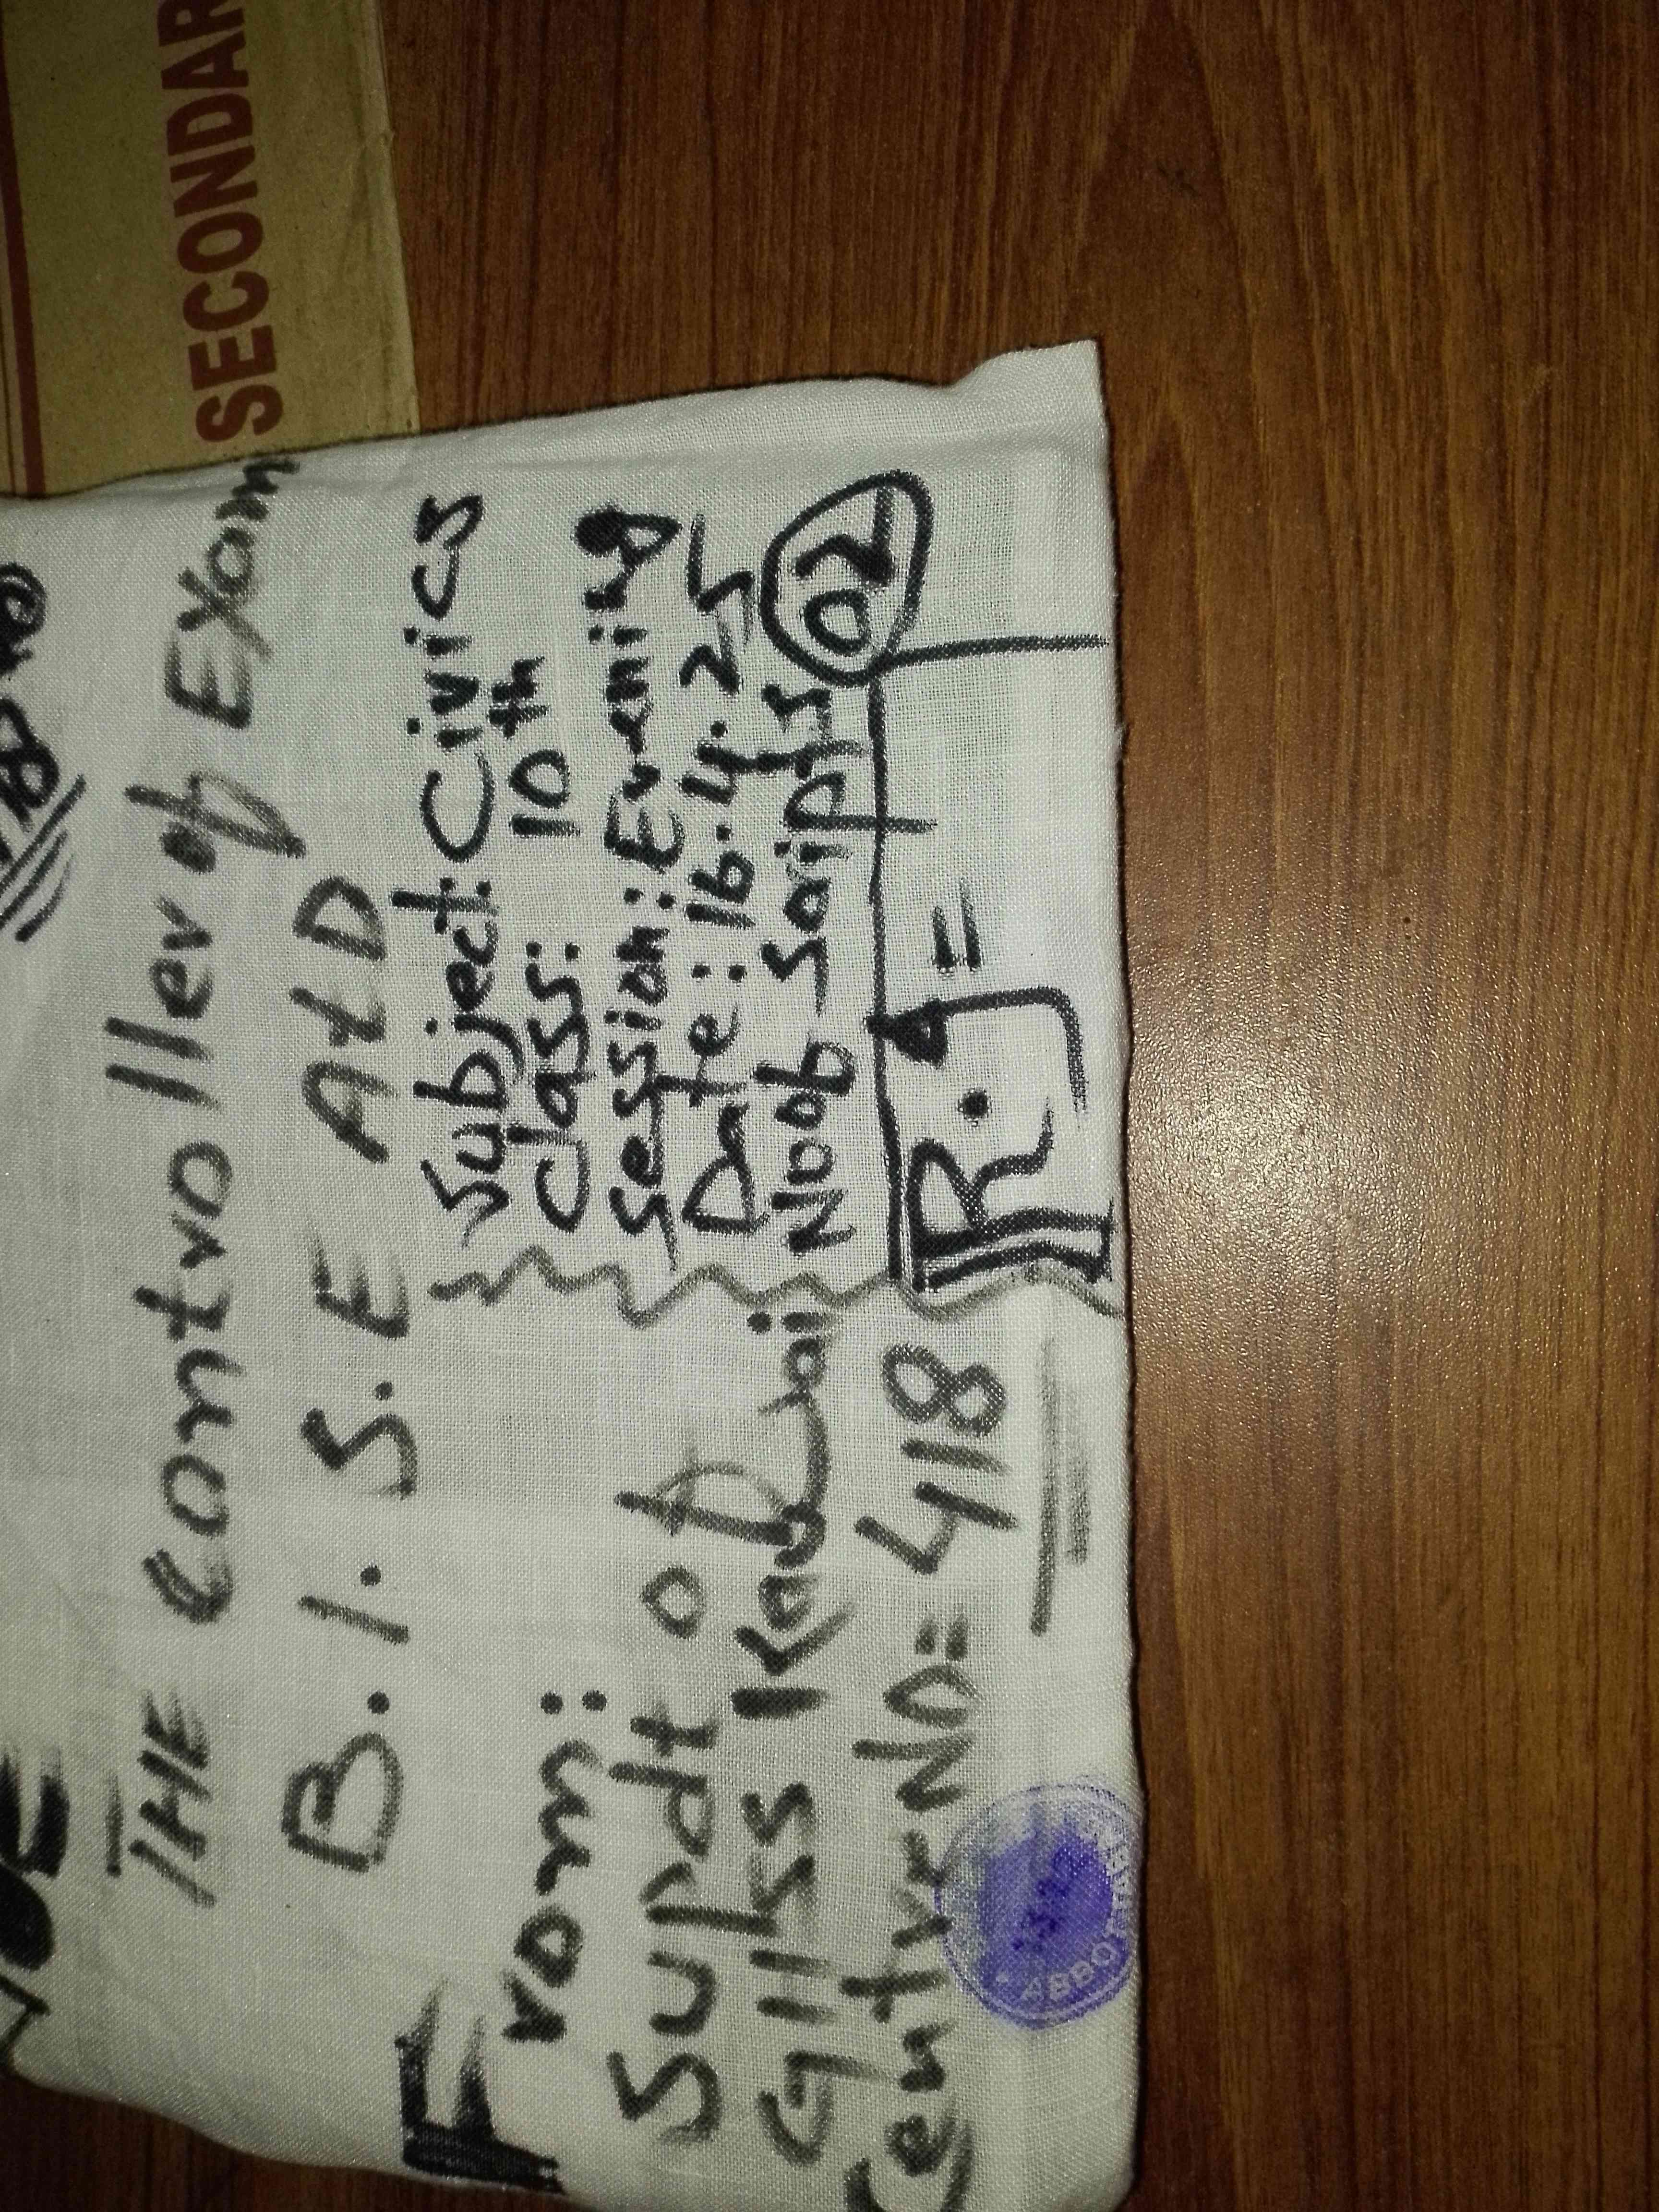 SECONDAR
THE Controller of Exam
B. I. S. E ATD
From:
Supdt of
GHSS
Centre No= 418
Subject: Civics
Class: 10th
Session: Evening
Date: 16.4.25
Noof Scripts 02
R.J =
ABBOTTABAD